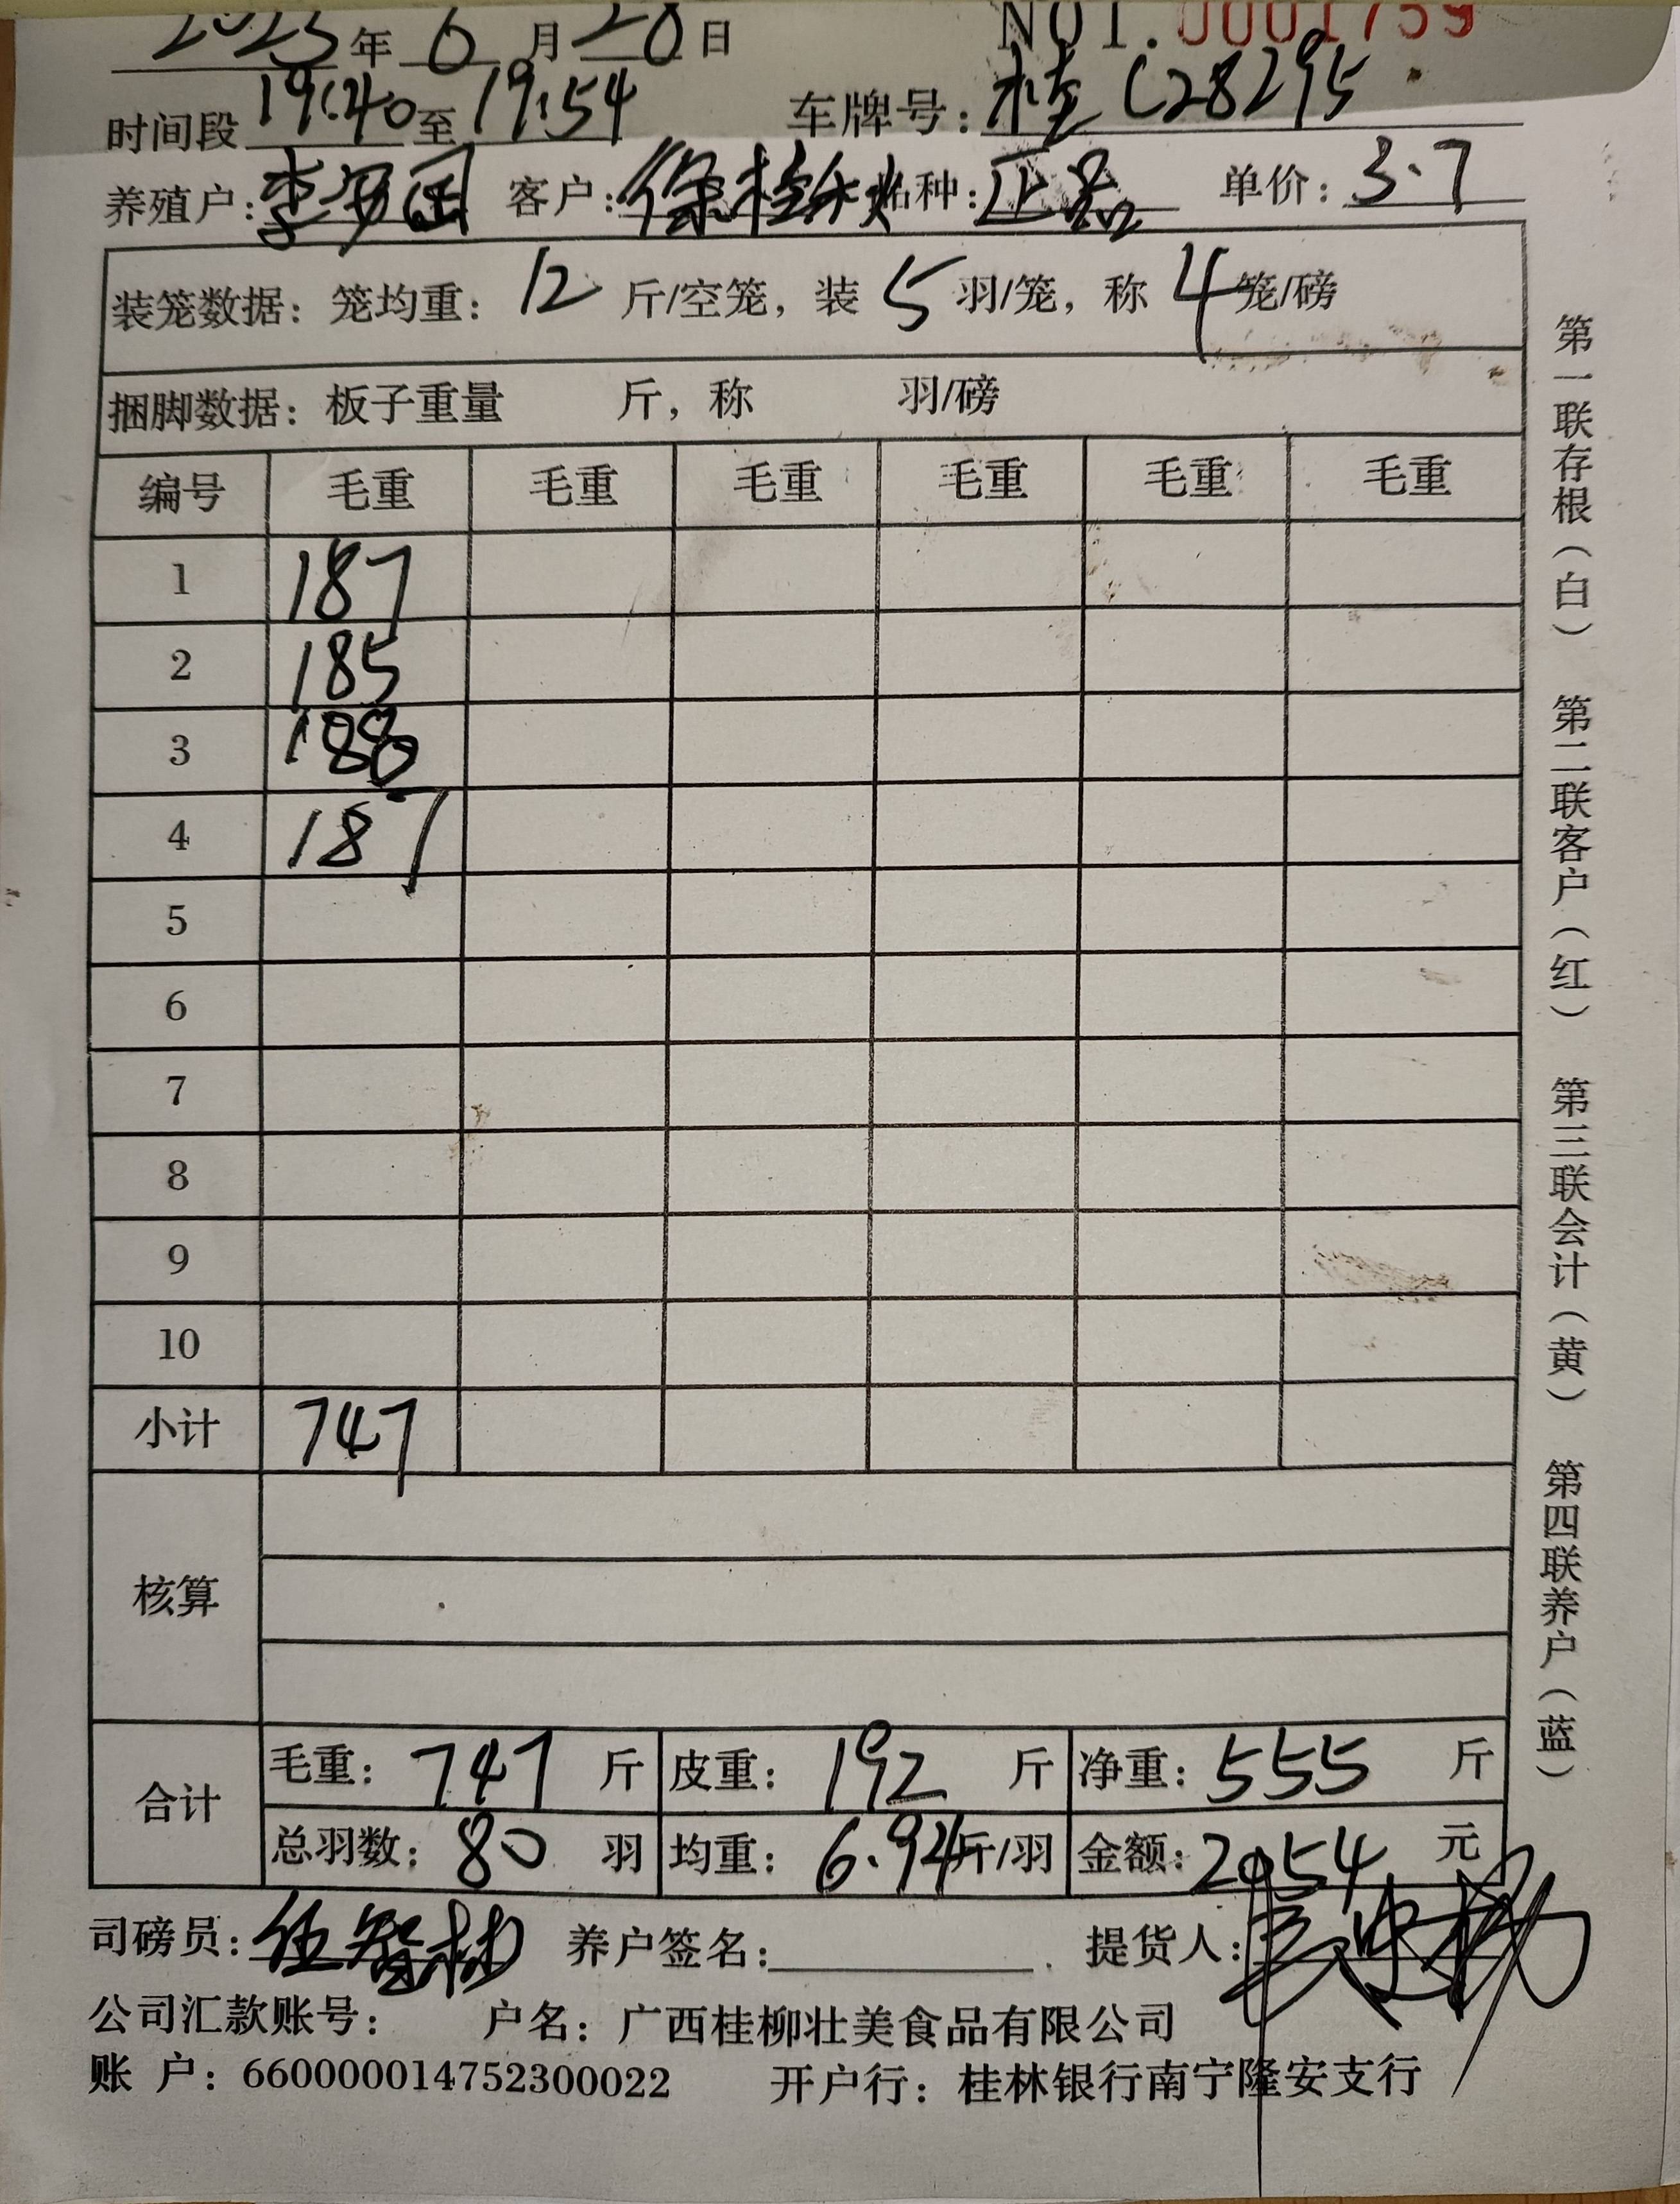 2023年6月28日 NO1.0001759
时间段19:40至19:54 车牌号:桂C28295
养殖户:李 客户:徐桂秋 品种:正品 单价:3.7
装笼数据:笼均重:12斤/空笼,装5羽/笼,称4笼/磅
捆脚数据:板子重量 斤,称 羽/磅
编号 毛重 毛重 毛重 毛重 毛重 毛重
1 187
2 185
3 188
4 187
5
6
7
8
9
10
小计 747
核算
合计 毛重:747斤 皮重:192斤 净重:555斤
总羽数:80羽 均重:6.94斤/羽 金额:2054元
司磅员:伍智林 养户签名: 提货人:
公司汇款账号: 户名:广西桂柳壮美食品有限公司
账 户:660000014752300022 开户行:桂林银行南宁隆安支行
第一联存根(白) 第二联客户(红) 第三联会计(黄) 第四联养户(蓝)